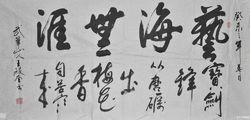 癸未年春月
藝海無涯
寶劍鋒從磨礪出
梅花香自苦寒來